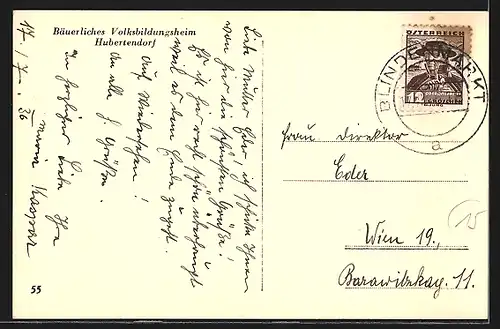 Bäuerliches Volksbildungsheim
Hubertendorf
17./7. 36
Liebe Mutter Eder, ich schicke Ihnen
von hier die schönsten Grüße!
Es ist hier recht schön
weil es dem Ende zugeht.
Auf Wiedersehen!
an alle Grüße
In herzlicher Liebe Ihre
Maria Kaspar
55
ÖSTERREICH
12
GROSCHEN
BLINDENMARKT
a
Frau Direktor
Eder
Wien 19.,
Barawitzkag. 11.